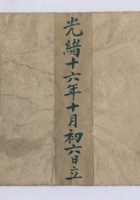 光緒十六年十月初六日立